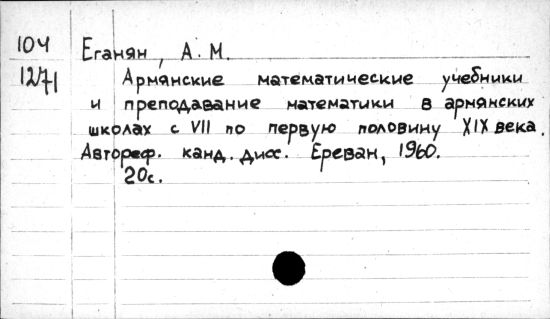 104 Еганян, А. М.
12/71 Армянские математические учебники
и преподавание математики в армянских
школах с VII по первую половину XIX века.
Автореф. канд. дисс. Ереван, 1960.
20с.